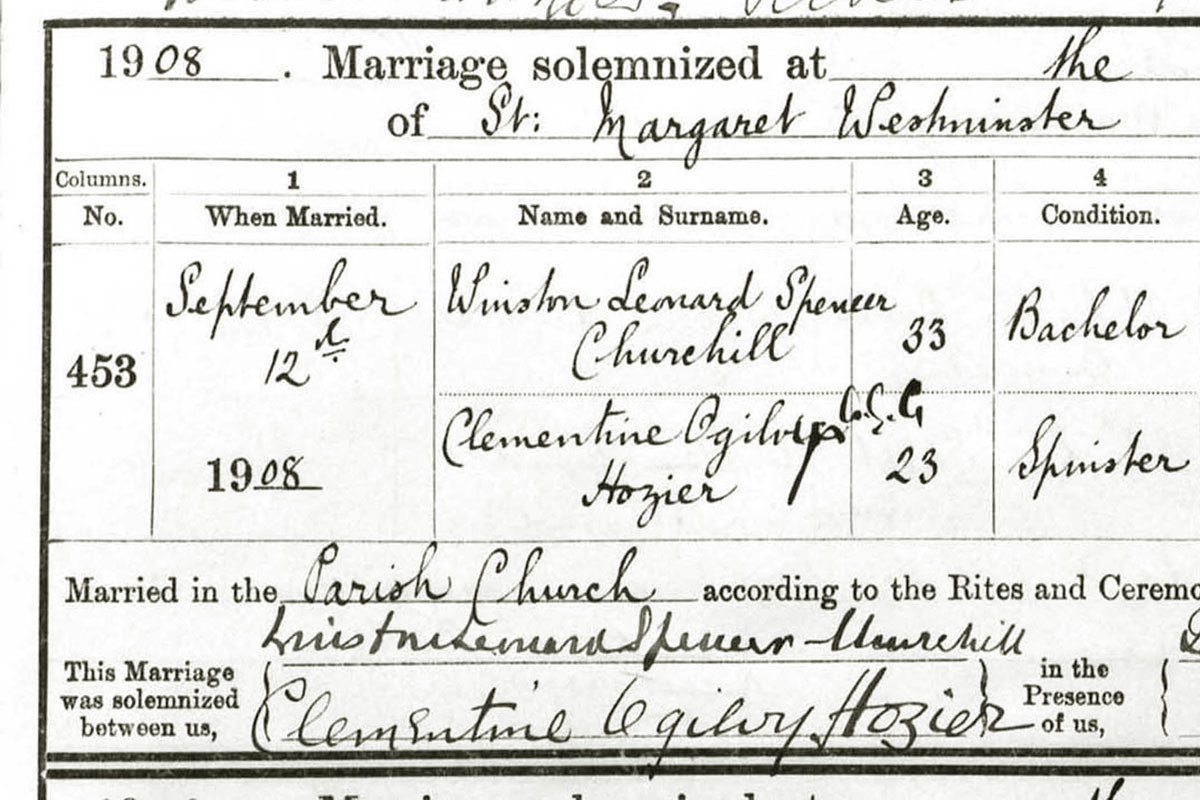 1908. Marriage solemnized at the
of St: Margaret Westminster
Columns. 1 2 3 4
No. When Married. Name and Surname. Age. Condition.
453 September 12th 1908
Winston Leonard Spencer
Churchill 33 Bachelor
Clementine Ogilvy
Hozier 23 Spinster
Married in the Parish Church according to the Rites and Ceremo
Winston Leonard Spencer-Churchill
This Marriage
was solemnized
between us,
Clementine Ogilvy Hozier
in the
Presence
of us,